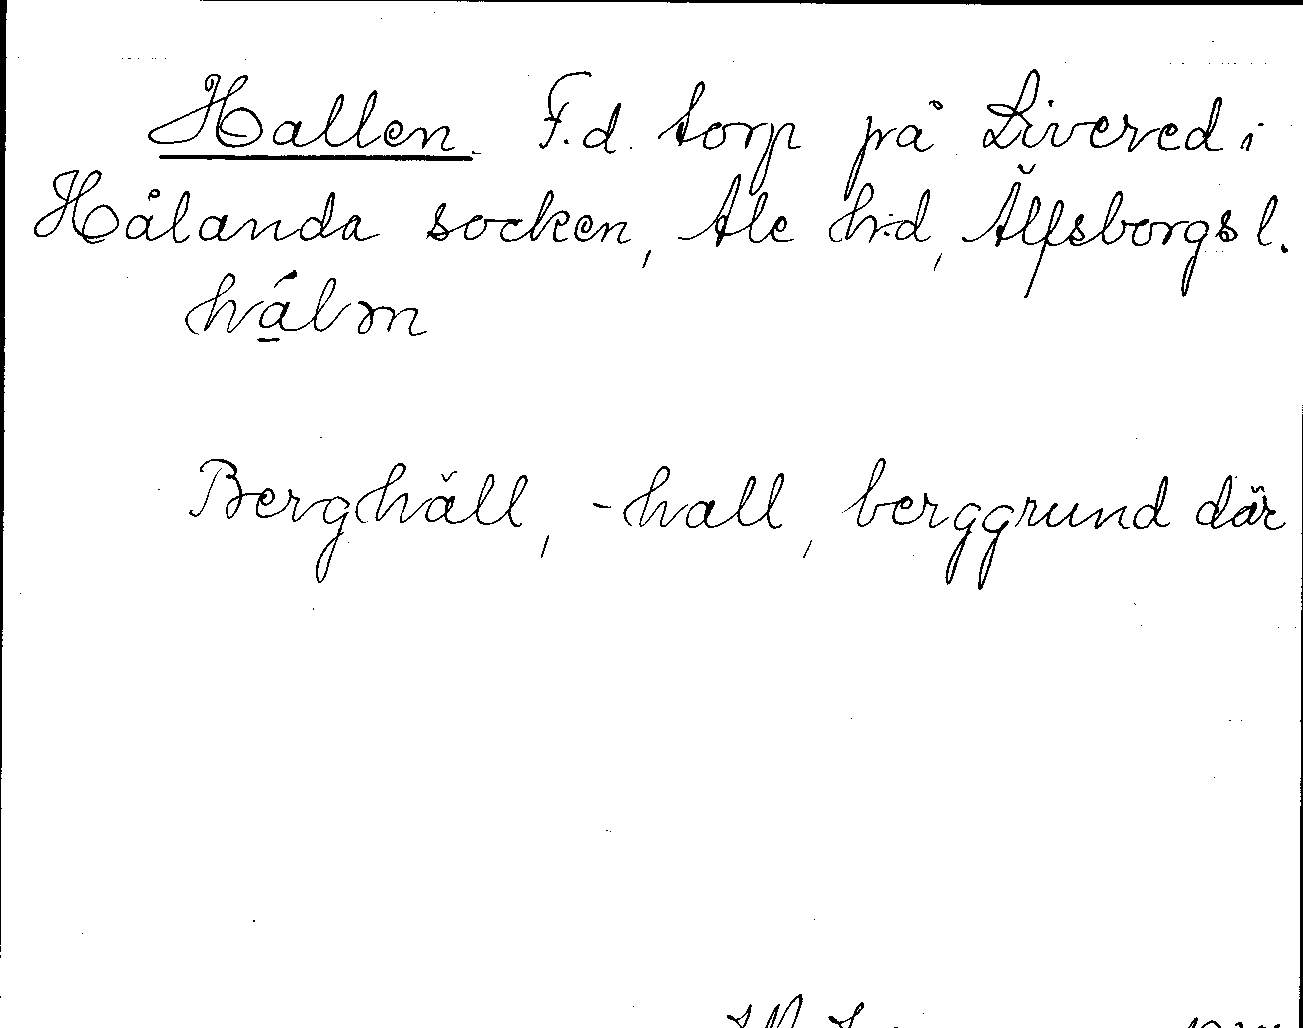 Hallen. F.d. torp på Livered i
Hålanda socken, Ale h:d, Älfsborgs l.
há̱lm
Berghäll, -hall, berggrund där